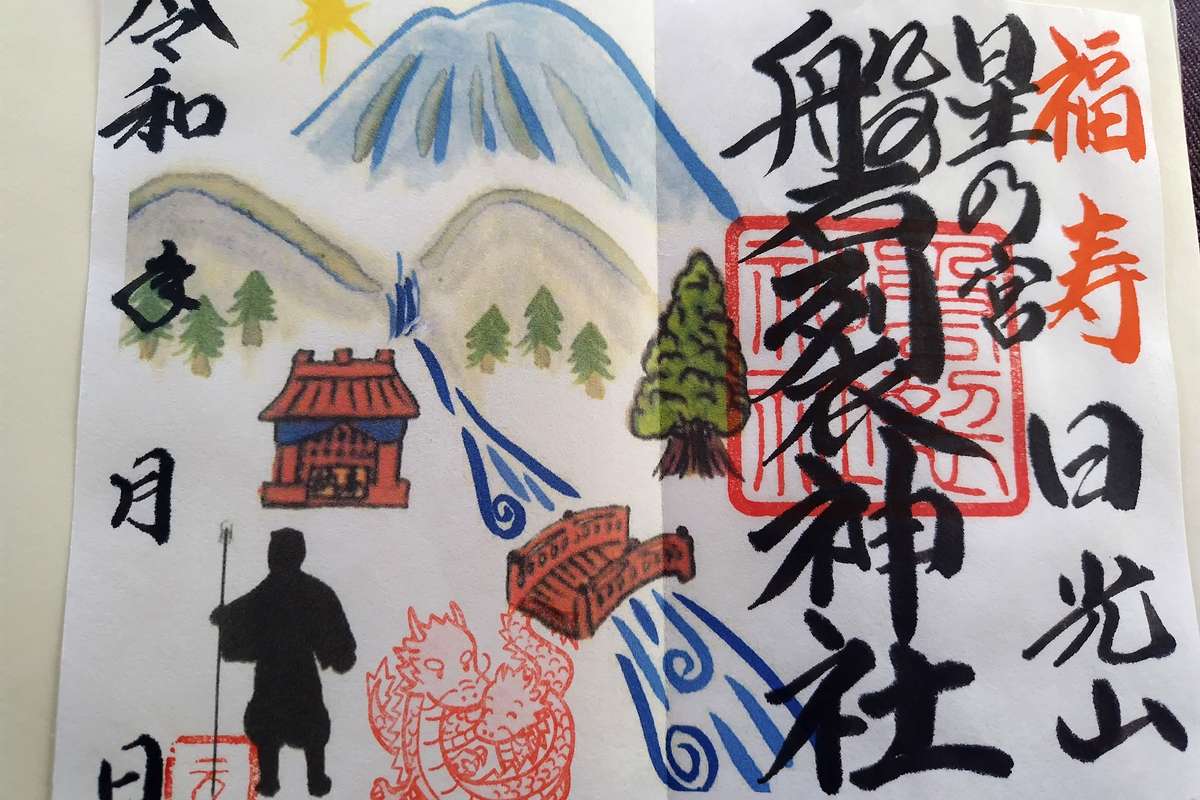 福寿 日光山
星乃宮
磐裂神社
令和 年 月 日